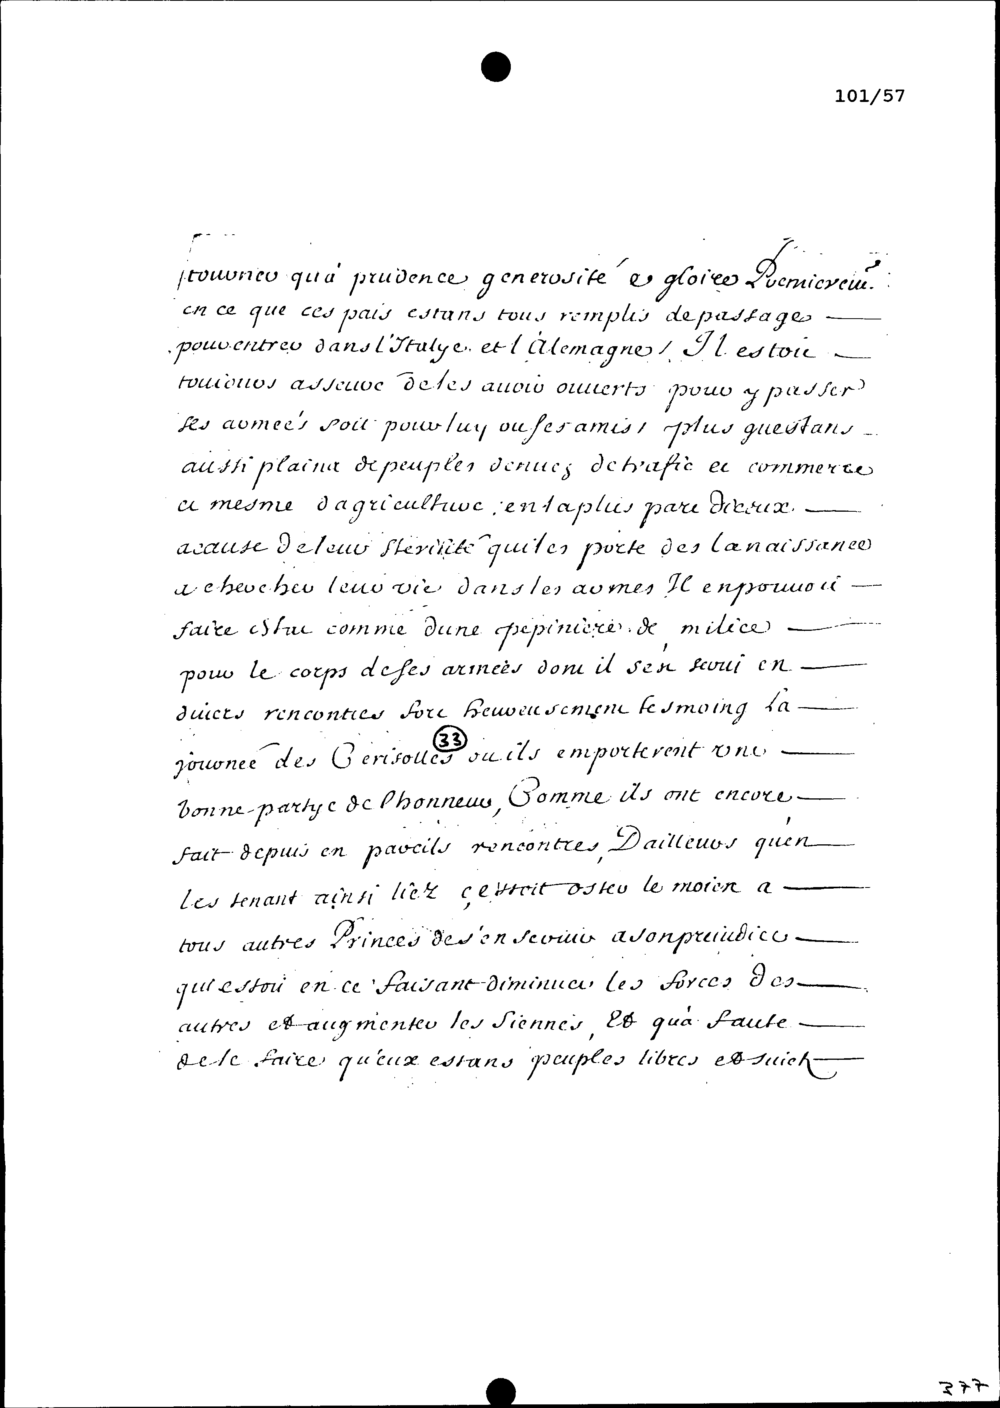 101/57
tourner qu'a prudence generosité & gloire Premierem.t
en ce que ces pais estans tous remplis de passages
pour entrer dans l'Italye et l'Alemagne / Il estoit
tousiours asseure de les avoir ouverts pour y passer
ses armeés soit pour luy ou ses amis / plus questans
aussi plains de peuples denuez de trafic et commerce
et mesme dagriculture en la plus part deceux
acause de leur sterilité qui les porte des la naissance
a chercher leur vie dans les armes Il en pouuoit
faire estat comme dune pepiniere de milice
pour le corps de ses armeès dont il s'en serui en
diuers rencontres fort heureusement tesmoing la
journeé des Cerisolles ou ils emporterent une
33
bonne partye de l'honneur, Comme ils ont encore
fait depuis en pareils rencontres, Dailleurs qu'en
les tenant ainsi liez c'estoit oster le moien a
tous autres Princes de s'en seruir a son preiudice
qui estoit en ce faisant diminuer les forces des
autres et augmenter les siennes, Et qu'a faute
de le faire qu'eux estans peuples libres et suiets
377